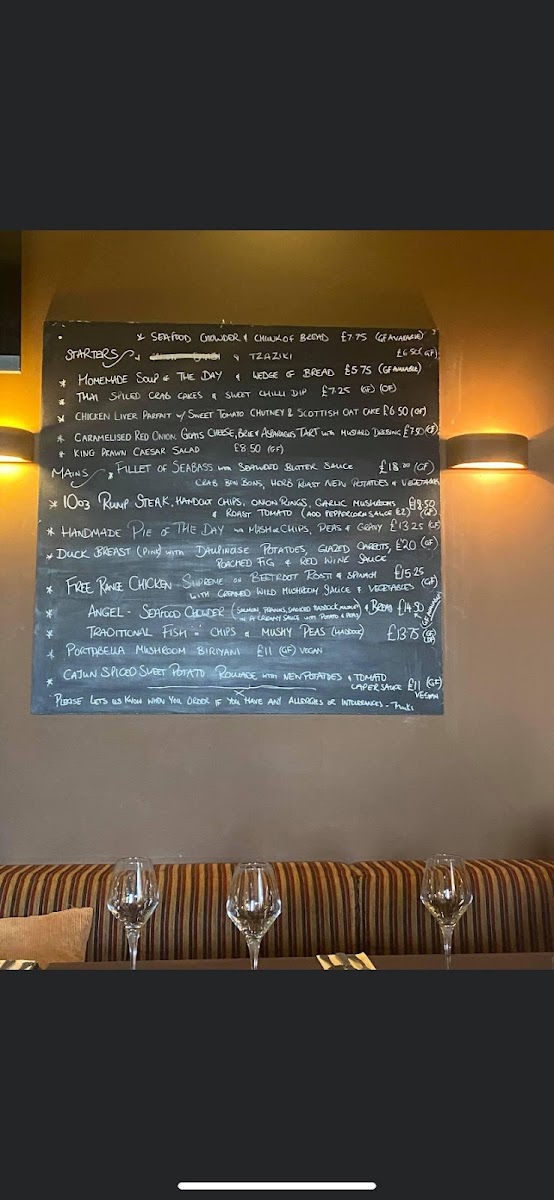 * SEAFOOD CHOWDER & CHUNK OF BREAD £7.75 (GF AVAILABLE)
STARTERS * & TZAZIKI £6.50 (GF)
* HOMEMADE SOUP OF THE DAY & WEDGE OF BREAD £5.75 (GF AVAILABLE)
* THAI SPICED CRAB CAKES & SWEET CHILLI DIP £7.25 (GF) (DF)
* CHICKEN LIVER PARFAIT W/ SWEET TOMATO CHUTNEY & SCOTTISH OAT CAKE £6.50 (GF)
* CARAMELISED RED ONION, GOATS CHEESE, BRIE & ASPARAGUS TART WITH MUSTARD DRESSING £7.50 (GF)
* KING PRAWN CAESAR SALAD £8.50 (GF)
MAINS * FILLET OF SEABASS WITH SEAWEED BUTTER SAUCE £18.00 (GF)
CRAB BON BONS, HERB ROAST NEW POTATOES & VEGETABLES
* 10oz RUMP STEAK, HANDCUT CHIPS, ONION RINGS, GARLIC MUSHROOMS £18.50
& ROAST TOMATO (ADD PEPPERCORN SAUCE £2) (GF)
* HANDMADE PIE OF THE DAY W MASH OR CHIPS, PEAS & GRAVY £13.25 (GF)
* DUCK BREAST (PINK) WITH DAUPINOISE POTATOES, GLAZED CARROTS, £20 (GF)
POACHED FIG & RED WINE SAUCE
* FREE RANGE CHICKEN SUPREME ON BEETROOT ROSTI & SPINACH £15.25
WITH CREAMED WILD MUSHROOM SAUCE & VEGETABLES (GF)
* ANGEL - SEAFOOD CHOWDER (SALMON, PRAWNS, SMOKED HADDOCK, & BREAD £14.50 (GF AVAILABLE)
IN A CREAMY SAUCE WITH POTATO & PEAS)
* TRADITIONAL FISH & CHIPS & MUSHY PEAS (HADDOCK) £13.75 (GF) (DF)
* PORTABELLA MUSHROOM BIRIYANI £11 (GF) VEGAN
* CAJUN SPICED SWEET POTATO ROULADE WITH NEW POTATOES & TOMATO
CAPER SAUCE £11 (GF)
VEGAN
PLEASE LET US KNOW WHEN YOU ORDER IF YOU HAVE ANY ALLERGIES OR INTOLERANCES - THANKS